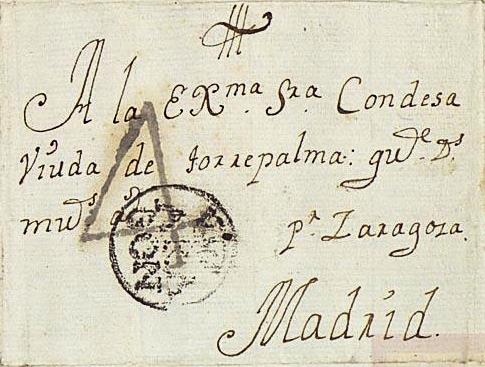 A la EXma. Sra. Condesa
Viuda de torrepalma: gude. Ds.
mus. as.
pr. Zaragoza.
Madrid.